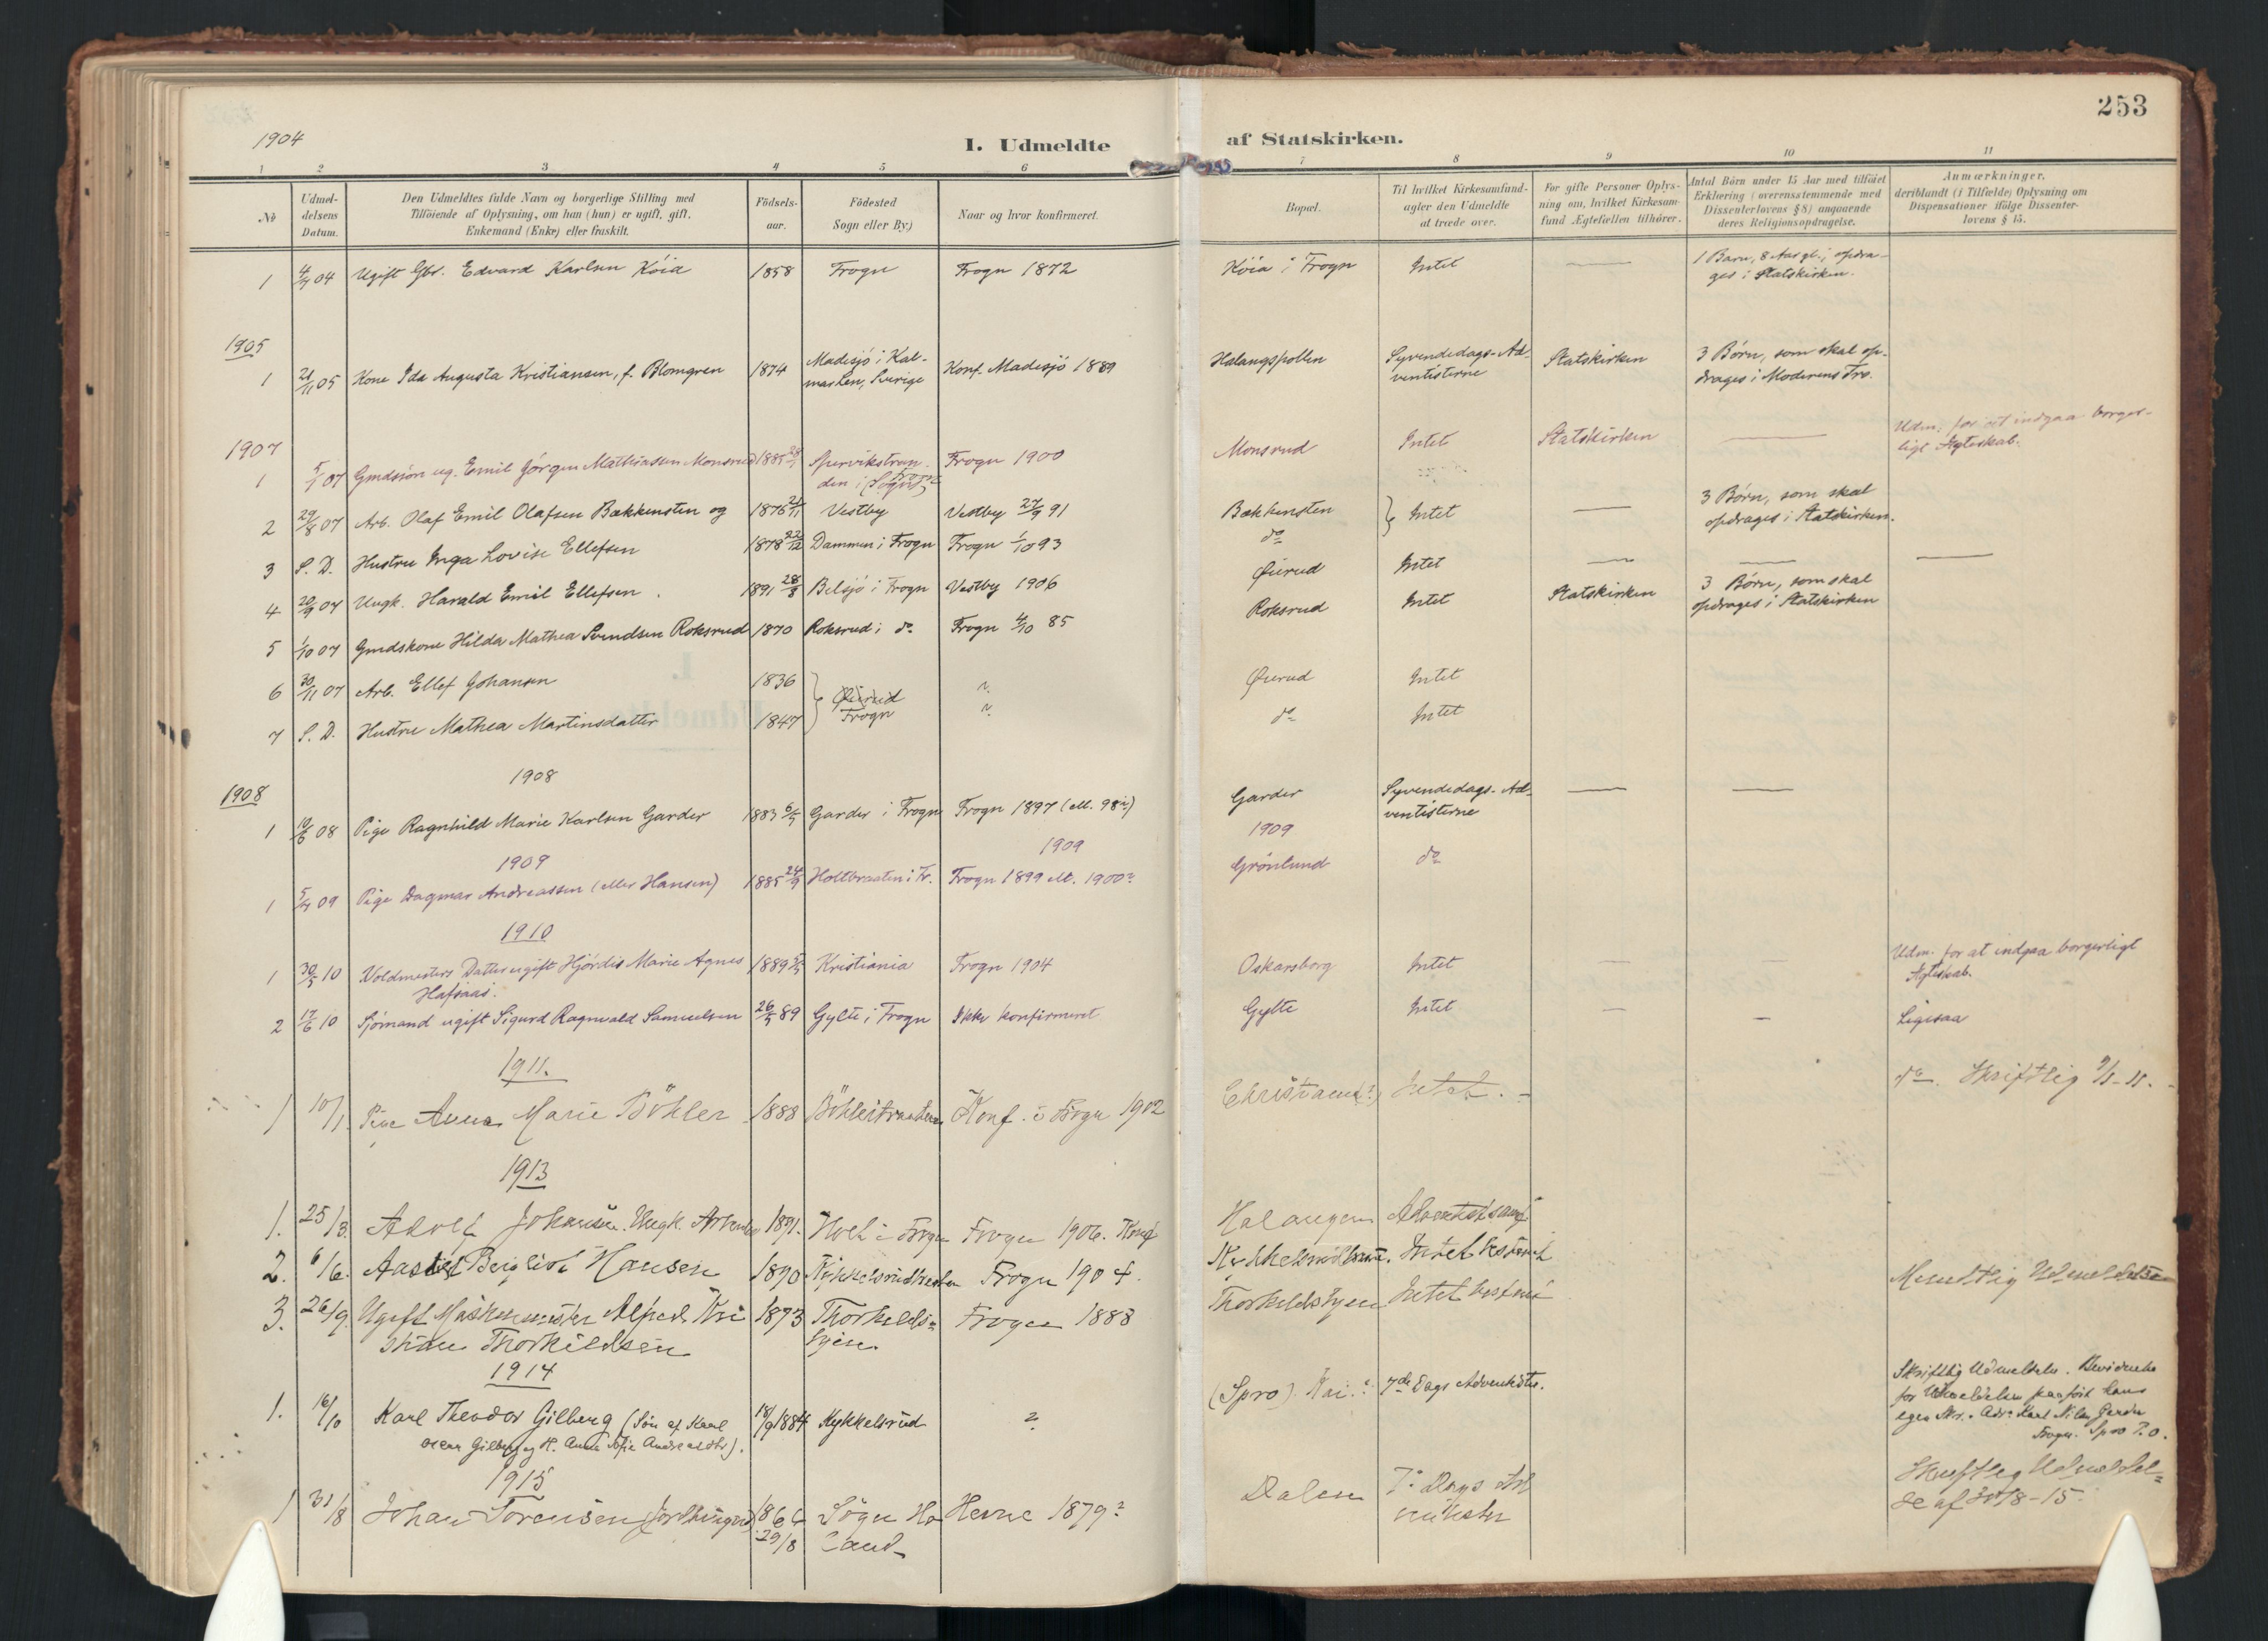 253
1904
I. Udmeldte af Statskirken.
1 2 3 4 5 6 7 8 9 10 11
No
Udmel-
delsens
Datum.
Den Udmeldtes fulde Navn og borgerlige Stilling med
Tilføiende af Oplysning, om han (hun) er ugift, gift,
Enkemand (Enke) eller fraskilt.
Fødsels-
aar.
Fødested
Sogn eller By)
Naar og hvor konfirmeret.
Bopæl.
Til hvilket Kirkesamfund
agter den Udmeldte
at træde over.
For gifte Personer Oplys-
ning om, hvilket Kirkesam-
fund Ægtefællen tilhører.
Antal Börn under 15 Aar med tilföiet
Erklæring (overensstemmende med
Dissenterlovens § 8) angaaende
deres Religionsopdragelse.
Anmærkninger.
deriblandt (i Tilfælde) Oplysning om
Dispensationer ifölge Dissenter-
lovens § 15.
1 4/7 04 Ugift Gbr. Edvard Karlsen Kóia 1858 Frogn Frogn 1872 Kóia i Frogn Intet — 1 Barn, 8 Aar gl.; opdra-
ges i Statskirken.
1905
1 21/11 05 Kone Ida Augusta Kristiansen, f. Blomgren 1874 Madesjó i Kal-
marlen, Sverige Konf. Madesjó 1889 Halangspollen Syvendedags-Ad-
ventisterne Statskirken 3 Børn, som skal op-
drages i Moderens Tro.
1907
1 5/1 07 Gmdsön ug. Emil Jörgen Mathiassen Monsrud 1885 Spervikstran-
den i Frogn Frogn 1900 Monsrud Intet Statskirken — Udm. for at indgaa borger-
ligt Ægteskab.
2 29/8 07 Arb. Olaf Emil Olafsen Bakkensten og 1876 21/11 Vestby Vestby 27/9 91 Bakkensten } Intet — 3 Børn, som skal
opdrages i Statskirken.
3 S. D. Hustru Inga Lovise Ellefsen 1878 22/12 Dammen i Frogn Frogn 1/10 93 do
4 20/9 07 Ungk. Harald Emil Ellefsen 1891 28/8 Belsjó i Frogn Vestby 1906 Øierud Intet — — —
5 1/10 07 Gmdskone Hilda Mathea Svendsen Roksrud 1870 Roksrud i do Frogn 4/10 85 Roksrud Intet Statskirken 3 Børn, som skal
opdrages i Statskirken
6 30/11 07 Arb. Ellef Johansen 1836 } Øierud
Frogn ? Øierud Intet
7 S. D. Hustru Mathea Martinsdatter 1847 ? do Intet
1908
1908
1 10/6 08 Pige Ragnhild Marie Karlsen Garder 1883 6/5 Garder i Frogn Frogn 1897 (ell. 98?) Garder Syvendedags-Ad-
ventisterne — —
1909 1909 1909
1 5/4 09 Pige Dagmar Andreassen (eller Hansen) 1885 24/9 Holtbraaten i Fr. Frogn 1899 ell. 1900? Grönlund do
1910
1 30/5 10 Voldmesters Datter ugift Hjördis Marie Agnes
Hafsaas. 1889 Kristiania Frogn 1904 Oskarsborg Intet — — Udm. for at indgaa borgerligt
Ægteskab.
2 17/6 10 Sjömand ugift Sigurd Ragnvald Samuelsen 26/5 89 Gylte i Frogn Ikke konfirmeret Gylte Intet — — Ligesaa
1911.
1 10/1 Pige Anna Marie Böhler 1888 Konf. i Frogn 1902 Intet. - do. Skriftlig 9/1-11.
1913
1. 25/3. Adolf Johansen. Ungk. Arbeider 1891. Holt i Frogn Frogn 1906. Konf Halangen Adventistsamf
2. 6/6. Aasta Bergliot Hansen 1890 Kykkelsrudbraaten Frogn 1904. Intet bestemt Mundtlig Udmeldelse
3. 26/9. Ugift Maskinmester Alfred Kri
stian Thorkildsen 1873 Thorkelds-
byen. Frogn 1888 Thorkeldsbyen Intet bestemt
1914
1. 16/10 Karl Theodor Gilberg (Sön af Karl
Oscar Gilberg og H. Anna Sofie Andreasdtr). 18/9 1884 Kykkelsrud ? (Spro) 7de Dags Adventister. Skriftlig Udmeldelse. Bevidnelse
for Udmeldelsen paaført hans
egen Skr. Adr: Karl Nilsen Garder
Frogn. Spro P.o.
1915
1 31/8 Johan Sörensen 1866
29/8 Sögne Ha
land Herne 1879? Dalen 7de Dags Ad
ventister Skriftlig Udmeldel-
se af 30/8-15.